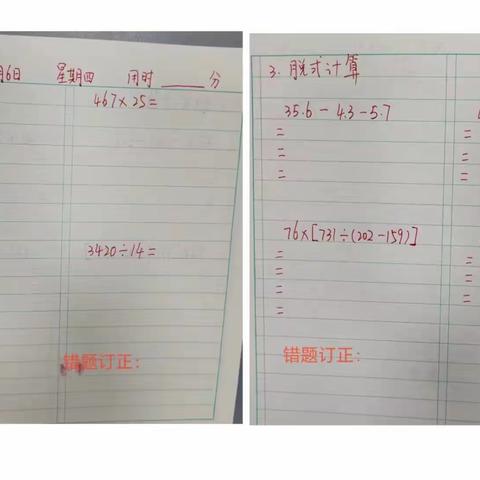 月6日 星期四 用时____分
467×25=
3420÷14=
错题订正：
3. 脱式计算
35.6-4.3-5.7
=
=
=
=
=
=
76×[731÷(202-159)]
=
=
=
=
=
=
=
错题订正：